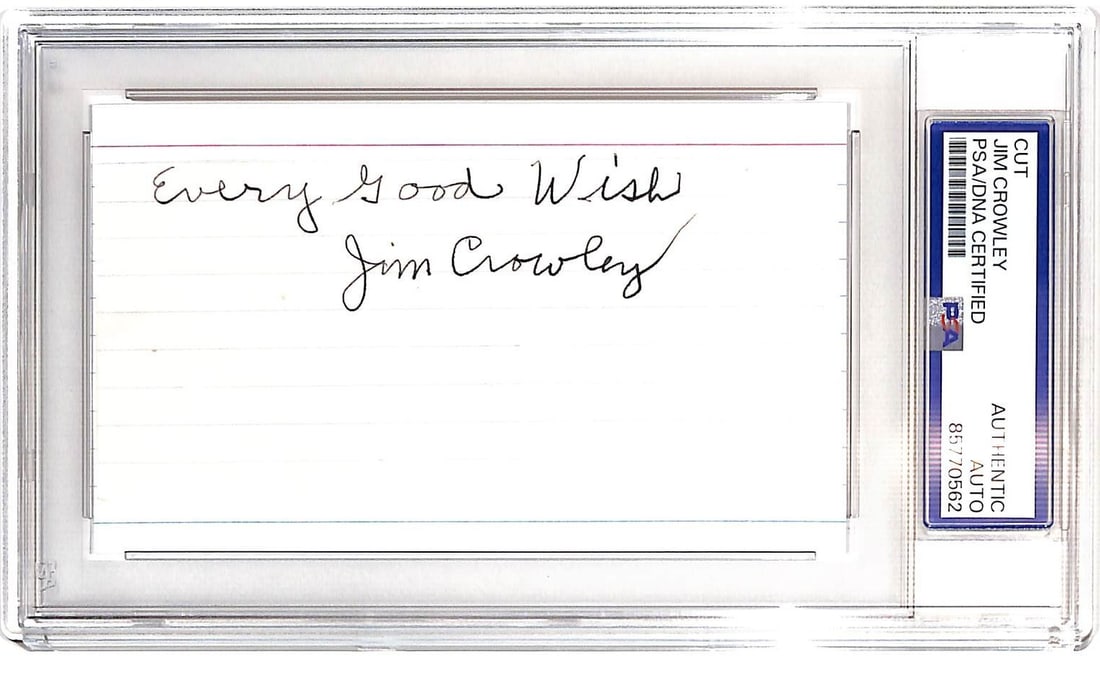 Every Good Wish
Jim Crowley
CUT
JIM CROWLEY
PSA/DNA CERTIFIED
PSA
AUTHENTIC
AUTO
85770562